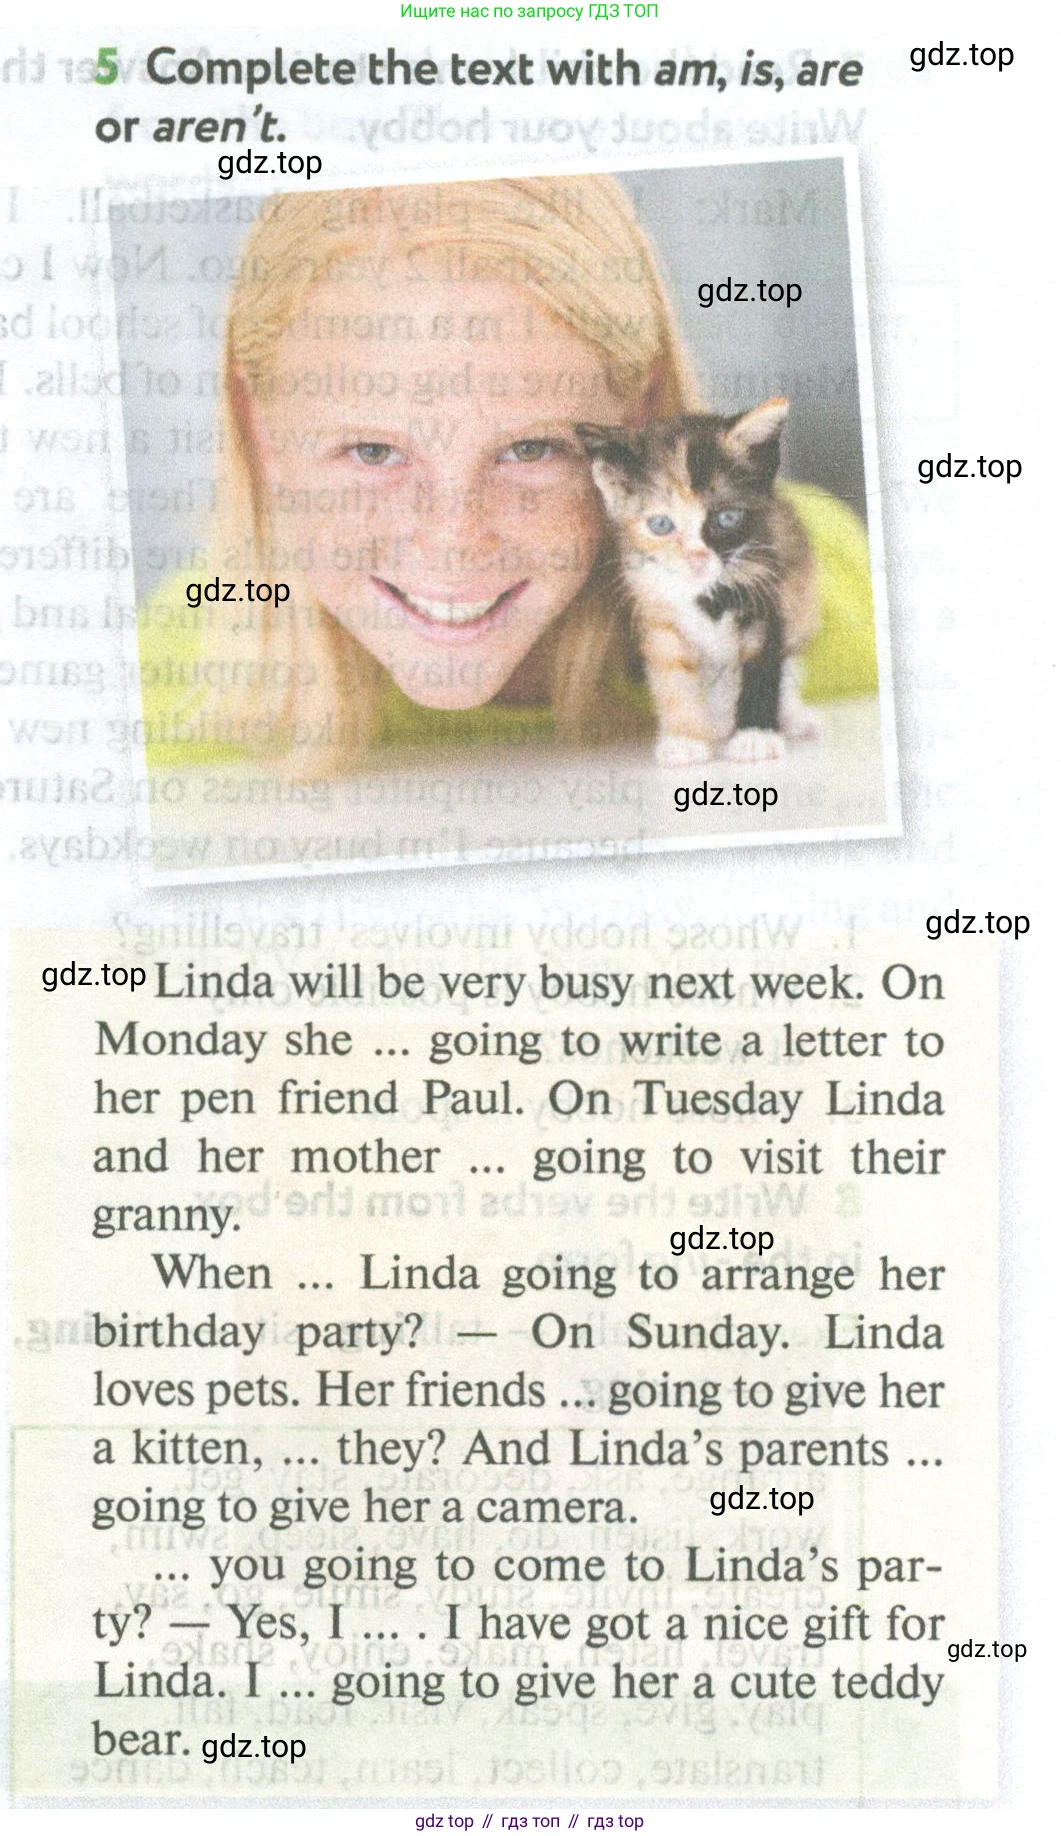 Ищите нас по запросу ГДЗ ТОП
5 Complete the text with am, is, are
gdz.top
or aren't.
gdz.top
gdz.top
gdz.top
gdz.top
gdz.top
gdz.top
gdz.top
Linda will be very busy next week. On
Monday she ... going to write a letter to
her pen friend Paul. On Tuesday Linda
and her mother ... going to visit their
granny.
gdz.top
When ... Linda going to arrange her
birthday party? — On Sunday. Linda
loves pets. Her friends ... going to give her
a kitten, ... they? And Linda's parents ...
going to give her a camera.
gdz.top
... you going to come to Linda's par-
ty? — Yes, I ... . I have got a nice gift for
gdz.top
Linda. I ... going to give her a cute teddy
bear.
gdz.top
gdz top // гдз топ // гдз top